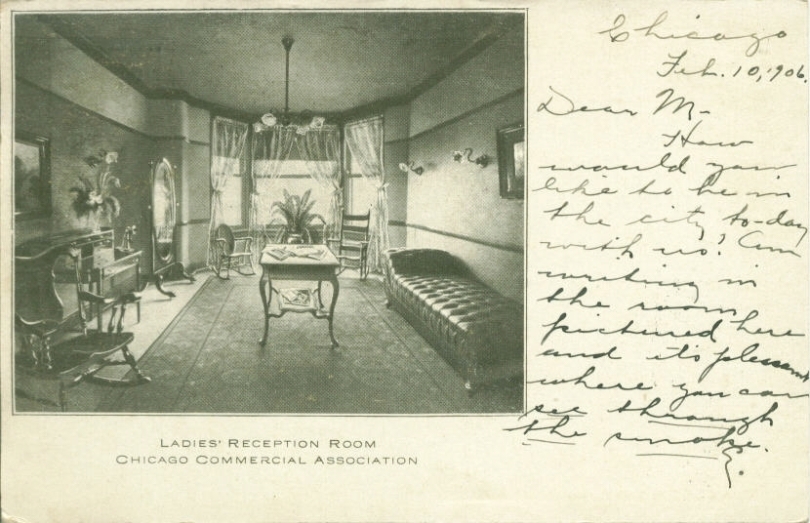 Chicago
Feb. 10, 1906.
Dear M-
How
would you
like to be in
the city to-day
with us? Am
writing in
the room
pictured here
and it's pleasant
where you can
see through
the smoke.
LADIES' RECEPTION ROOM
CHICAGO COMMERCIAL ASSOCIATION